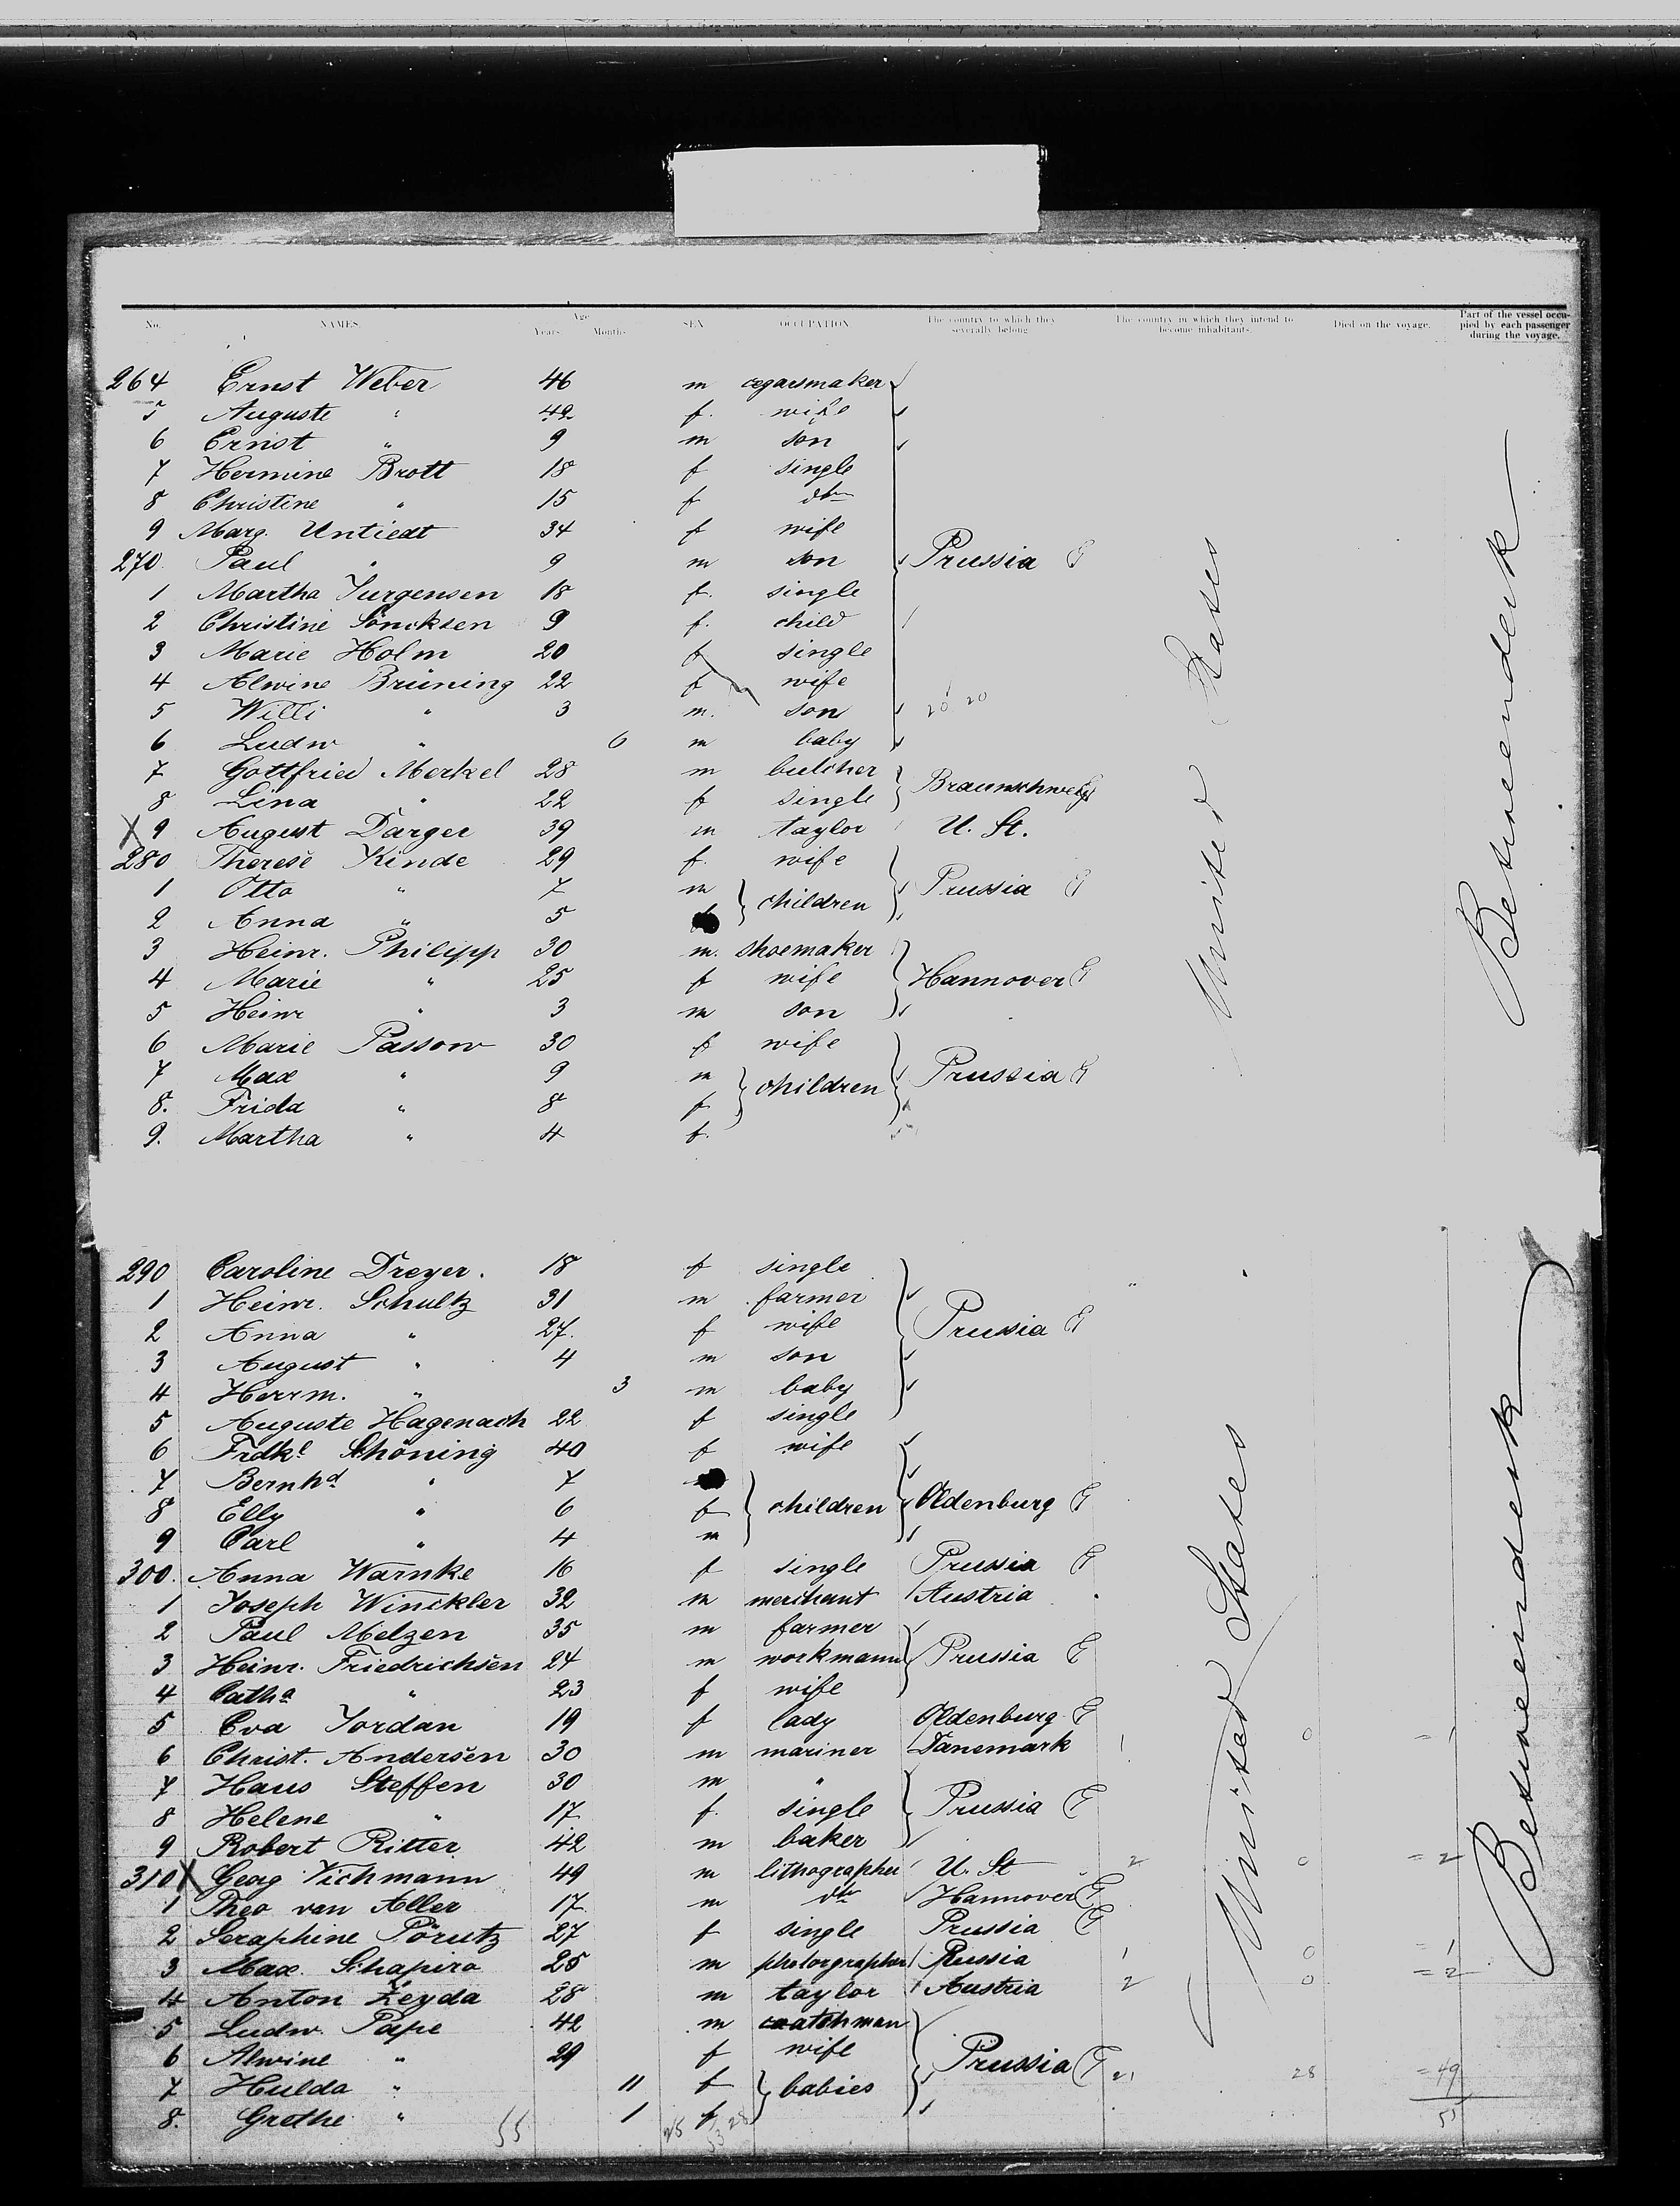 No. NAMES Age Years Months SEX OCCUPATION The country to which they severally belong The country in which they intend to become inhabitants. Died on the voyage. Part of the vessel occupied by each passenger during the voyage.
264 Ernst Weber 46 m cegarsmaker
5 Auguste " 42 f. wife
6 Ernst " 9 m son
7 Hermine Brott 18 f single
8 Christine " 15 f dto
9 Marg. Untiedt 34 f wife
270. Paul " 9 m son Prussia G
1 Martha Jurgensen 18 f. single
2 Christine Söncksen 9 f. child
3 Marie Holm 20 f single
4 Alwine Brüning 22 f wife
5 Willi " 3 m. son 20 20
6 Ludw " 6 m baby
7 Gottfried Merkel 28 m butcher Braunschweig
8 Lina " 22 f single
X 9 August Darger 39 m taylor U. St.
280 Therese Kinde 29 f. wife
1 Otto " 7 m children Prussia G
2 Anna " 5
3 Heinr. Philipp 30 m. shoemaker
4 Marie " 25 f wife Hannover G
5 Heinr " 3 m son
6 Marie Passow 30 f wife
7 Max " 9 m children Prussia G
8. Frida " 8 f
9. Martha " 4 f.
United States
Betweendeck
290 Caroline Dreyer. 18 f single
1 Heinr. Schultz 31 m farmer
2 Anna " 27. f wife Prussia G
3 August " 4 m son
4 Herrm. " 3 m baby
5 Auguste Hagenach 22 f single
6 Frdke Schöning 40 f wife
7 Bernhd " 7
8 Elly " 6 f children Oldenburg G
9 Carl " 4 m
300. Anna Warnke 16 f single Prussia G
1 Joseph Winckler 32 m merchant Austria
2 Paul Melzen 35 m farmer
3 Heinr. Friedrichsen 24 m workmann Prussia G
4 Catha " 23 f wife
5 Eva Jordan 19 f lady Oldenburg G
6 Christ. Andersen 30 m mariner Danemark 1 0 = 1
7 Hans Steffen 30 m "
8 Helene " 17. f. single Prussia G
9 Robert Ritter 42 m baker
310 X Georg Vichmann 49 m lithographer U. St 2 0 = 2
1 Theo van Aller 17. m dto Hannover G
2 Seraphine Pörutz 27 f single Prussia G
3 Max. Schapiro 25 m photorgrapher Russia 1 0 = 1
4 Anton Zeyda 28 m taylor Austria 2 0 = 2
5 Ludw. Pape 42 m coatchman
6 Alwine " 29 f wife Prussia G 21 28 = 49
7 Hulda " 11 f babies
8. Grethe " 1 f
55 25 28 53
United States
Betweendeck